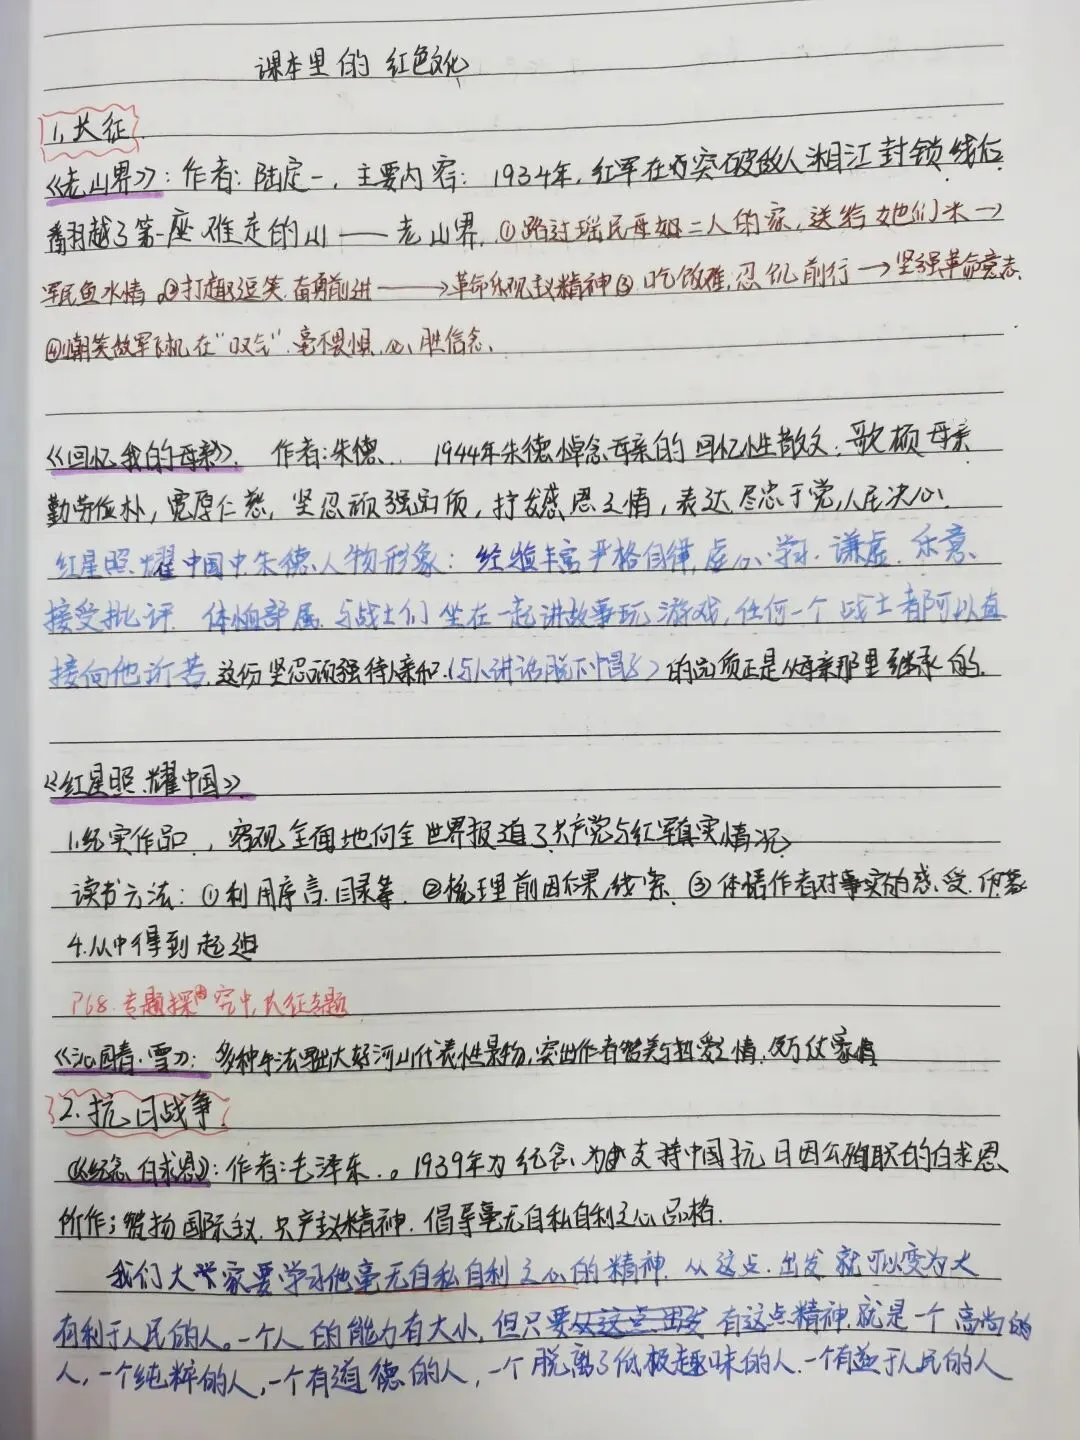 课本里的红色文化
1、长征
《老山界》：作者：陆定一，主要内容：1934年，红军在突破敌人湘江封锁线后
翻越了第一座难走的山——老山界，①路过瑶民母女二人的家，送给她们米→
军民鱼水情。②打趣逗笑、奋勇前进→革命乐观主义精神③吃饭难，忍饥前行→坚强革命意志、
④嘲笑敌军飞机在"叹气"、毫不畏惧、必胜信念、
《回忆我的母亲》、作者：朱德、1944年朱德悼念母亲的回忆性散文：歌颂母亲
勤劳俭朴，宽厚仁慈，坚忍顽强品质，抒发感恩之情，表达尽忠于党，人民决心.
红星照耀中国中朱德人物形象：经验丰富严格自律，虚心学习、谦虚、乐意
接受批评、体恤部属、与战士们坐在一起讲故事玩游戏，任何一个战士都可以直
接向他诉苦，这份坚忍顽强待人亲和（与人讲话脱下帽子）的品质正是从母亲那里继承的.
《红星照耀中国》
1.纪实作品，客观全面地向全世界报道了共产党与红军真实情况
读书方法：①利用序言、目录等、②梳理前因后果，线索、③体悟作者对事实的感受、印象
4.从中得到启迪
P68.专题探究中，长征专题
《沁园春·雪》：多种手法写出大好河山代表性景物，突出作者赞美与热爱之情，
2.抗日战争
《纪念白求恩》：作者：毛泽东.。1939年为纪念、为支持中国抗日因公殉职的白求恩
所作；赞扬国际主义、共产主义精神、倡导毫无自私自利之心品格.
我们大家要学习他毫无自私自利之心的精神、从这点、出发就可以变为大
有利于人民的人。一个人的能力有大小，但只要从这点出发有这点精神，就是一个高尚的
人，一个纯粹的人，一个有道德的人，一个脱离了低极趣味的人、一个有益于人民的人